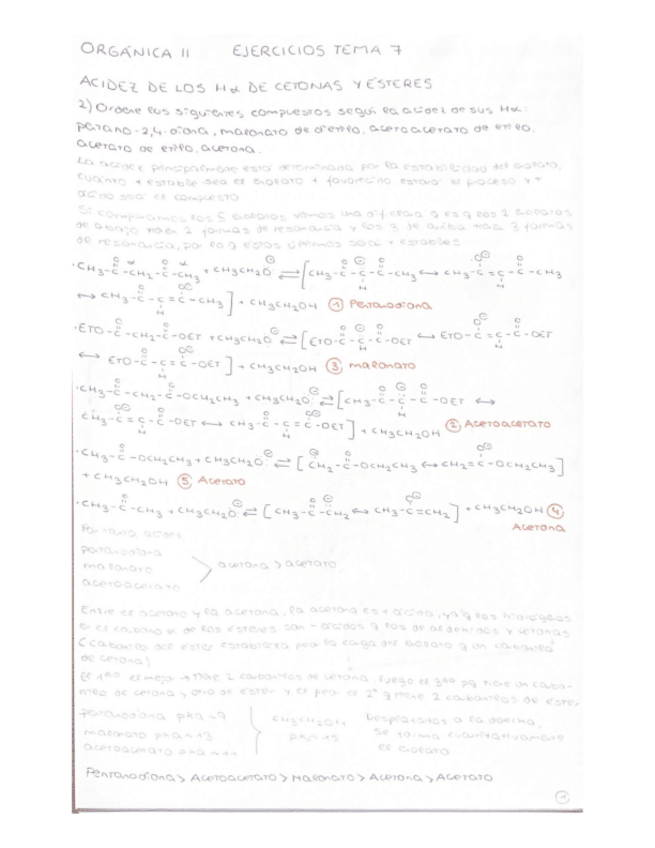 ORGÁNICA II EJERCICIOS TEMA 7
ACIDEZ DE LOS Hα DE CETONAS Y ÉSTERES
2) Ordene los siguientes compuestos según la acidez de sus Hα:
pentano-2,4-diona, malonato de dietilo, acetoacetato de etilo,
acetato de etilo, acetona.
La acidez principalmente está determinada por la estabilidad del enolato,
cuanto + estable sea el enolato + favorecido estará el proceso y +
ácido será el compuesto
Si comparamos los 5 enolatos vemos una diferencia q es q los 2 enolatos
de abajo traen 2 formas de resonancia y los 3 de arriba traen 3 formas
de resonancia, por lo q estos últimos será + estables
·CH3-C-CH2-C-CH3 + CH3CH2O ⇌ [CH3-C-C-C-CH3 ↔ CH3-C=C-C-CH3
↔ CH3-C-C=C-CH3] + CH3CH2OH ① Pentanodiona
·ETO-C-CH2-C-OET + CH3CH2O ⇌ [ETO-C-C-C-OET ↔ ETO-C=C-C-OET
↔ ETO-C-C=C-OET] + CH3CH2OH ③ malonato
·CH3-C-CH2-C-OCH2CH3 + CH3CH2O ⇌ [CH3-C-C-C-OET ↔
CH3-C=C-C-OET ↔ CH3-C-C=C-OET] + CH3CH2OH ② Acetoacetato
·CH3-C-OCH2CH3 + CH3CH2O ⇌ [CH2-C-OCH2CH3 ↔ CH2=C-OCH2CH3]
+ CH3CH2OH ⑤ Acetato
·CH3-C-CH3 + CH3CH2O ⇌ [CH3-C-CH2 ↔ CH3-C=CH2] + CH3CH2OH ④
Acetona
Por tanto, acidez
pentanodiona
malonato > acetona > acetato
acetoacetato
Entre el acetato y la acetona, la acetona es + ácida, ya q los hidrógenos
en el carbono α de los ésteres son - ácidos q los de aldehidos y cetonas
(carbonilo del ester estabiliza peor la carga del enolato q un carbonilo
de cetona)
El 1º es mejor → tiene 2 carbonilos de cetona, luego el 3º pq tiene un carbo-
nilo de cetona y otro de ester y el peor el 2º q tiene 2 carbonilos de ester
pentanodiona pka~9 CH3CH2OH Desplazados a la derecha,
malonato pka~13 pk~15 se forma cuantitativamente
acetoacetato pka~11 el enolato
Pentanodiona > Acetoacetato > Malonato > Acetona > Acetato
1